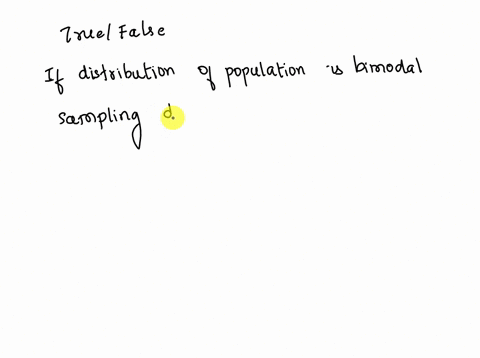 True/False
If distribution of population is bimodal
sampling d.